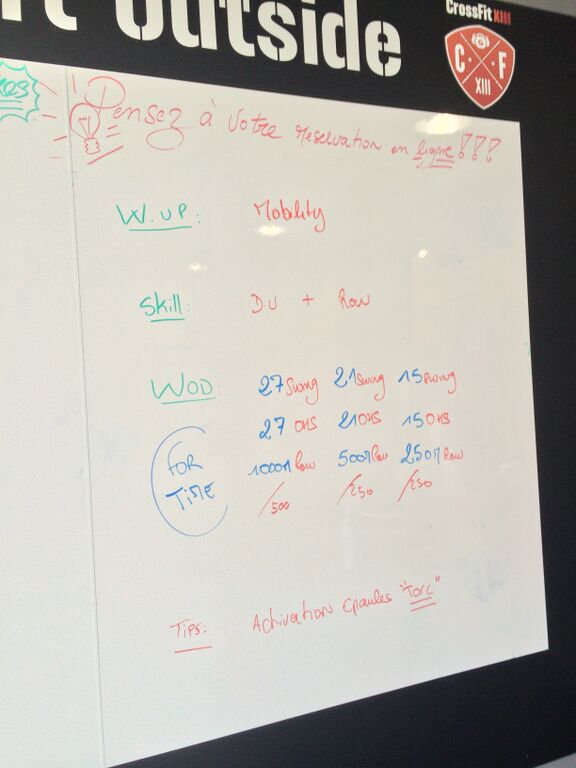 outside
CrossFit XIII
C F
XIII
Pensez à votre réservation en ligne !!!
W.UP: Mobility
Skill: DU + Row
WOD: 27 Swing 21 Swing 15 Swing
27 OHS 21 OHS 15 OHS
FOR TIME
1000m Row 500m Row 250m Row
/500 /250 /250
Tips: Activation Epaules "Torc"